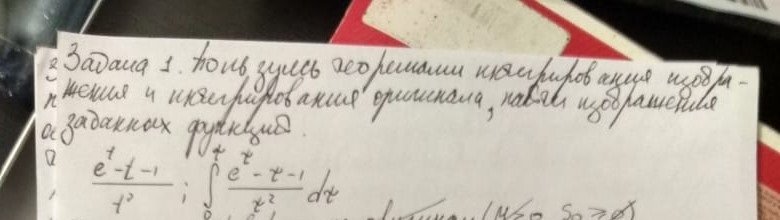 Задача 1. Пользуясь теоремами интегрирования изобра-
жения и интегрирования оригинала, найти изображения
заданных функций.
(e^t - t - 1)/t² ; ∫₀^t (e^τ - τ - 1)/τ² dτ